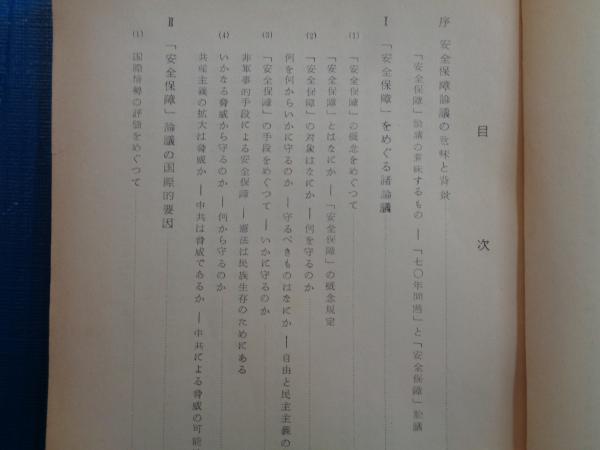 目次
序 安全保障論議の意味と背景
「安全保障」論議の意味するもの ― 「七〇年問題」と「安全保障」論議
Ⅰ 「安全保障」をめぐる諸論議
(1) 「安全保障」の概念をめぐつて
「安全保障」とはなにか ― 「安全保障」の概念規定
(2) 「安全保障」の対象はなにか ― 何を守るのか
何を何からいかに守るのか ― 守るべきものはなにか ― 自由と民主主義の
(3) 「安全保障」の手段をめぐつて ― いかに守るのか
非軍事的手段による安全保障 ― 憲法は民族生存のためにある
(4) いかなる脅威から守るのか ― 何から守るのか
共産主義の拡大は脅威か ― 中共は脅威であるか ― 中共による脅威の可能
Ⅱ 「安全保障」論議の国際的要因
(1) 国際情勢の評価をめぐつて